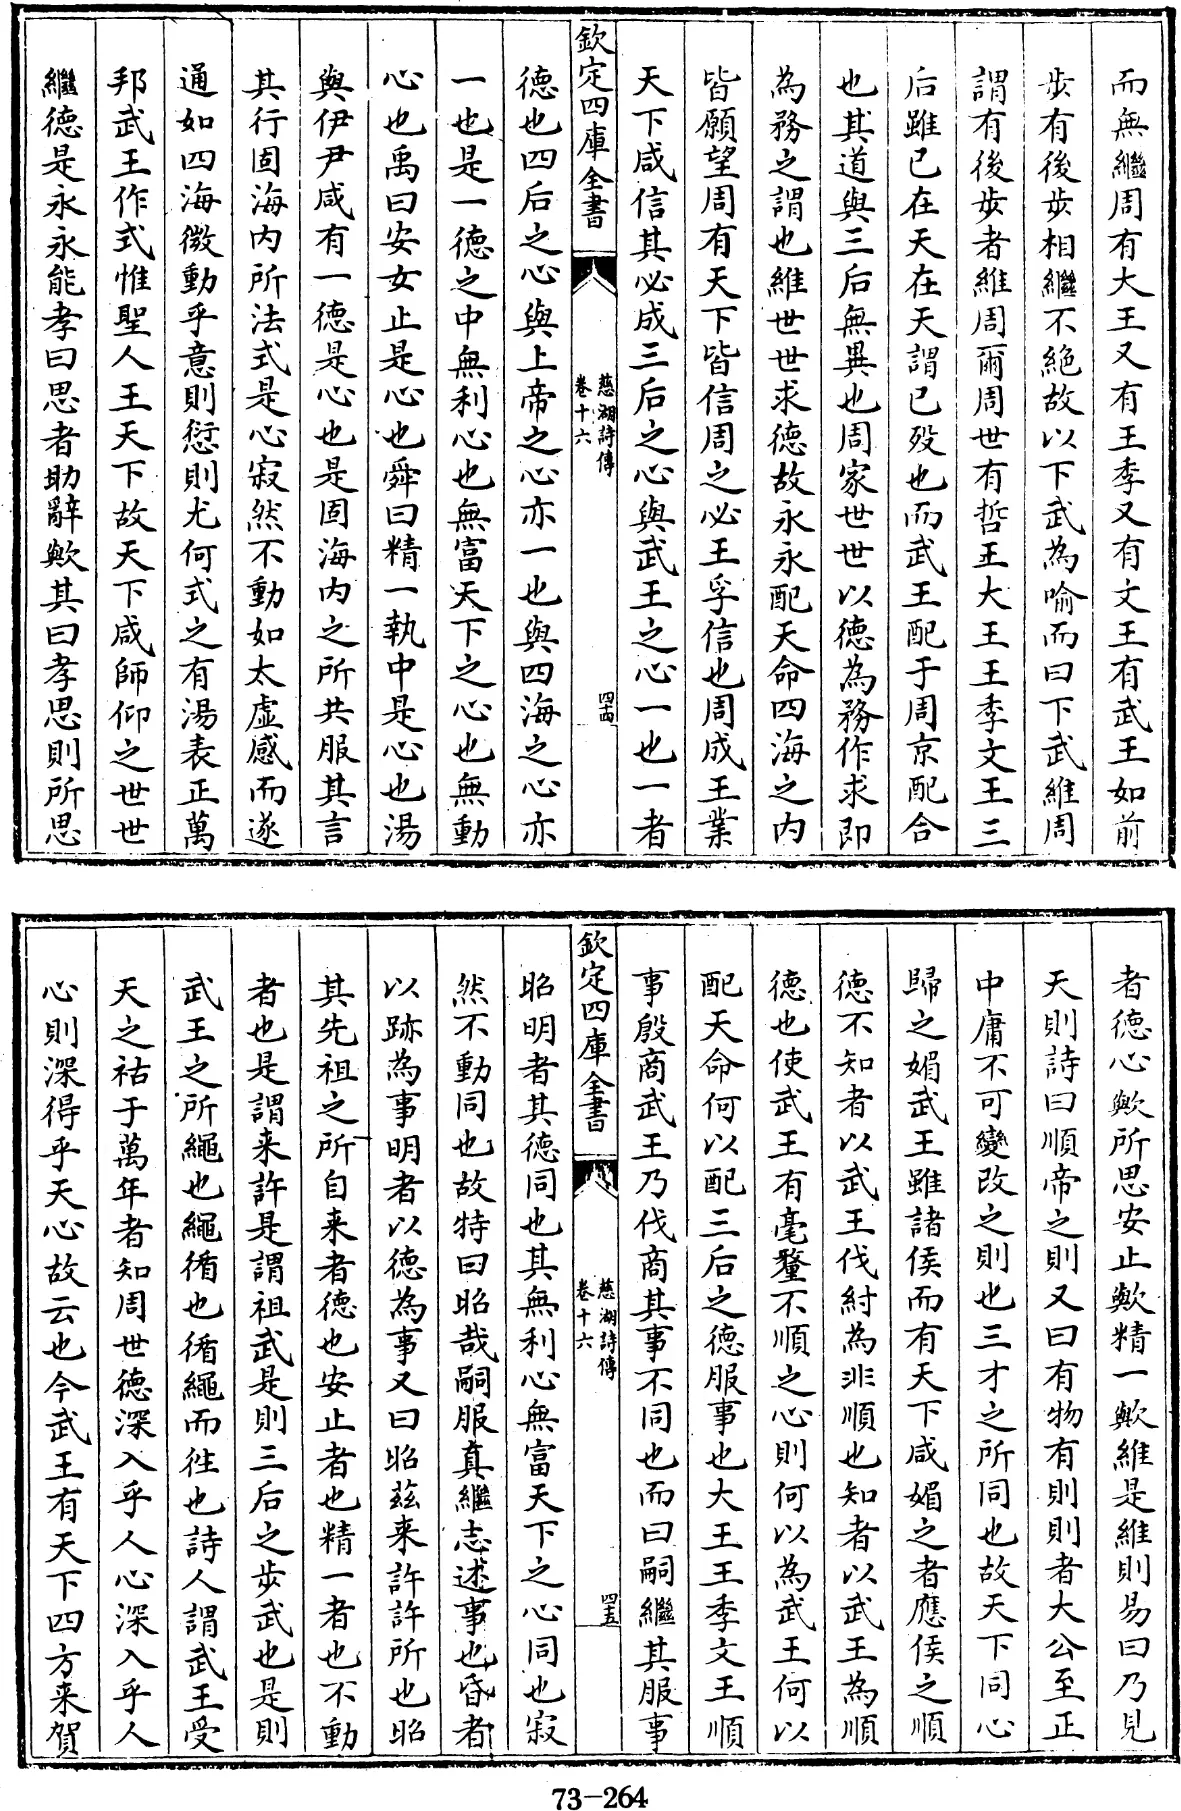 而無繼周有大王又有王季又有文王有武王如前
步有後步相繼不絶故以下武為喻而曰下武維周
謂有後步者維周爾周世有哲王大王王季文王三
后雖已在天在天謂已殁也而武王配于周京配合
也其道與三后無異也周家世世以德為務作求即
為務之謂也維世世求德故永永配天命四海之内
皆願望周有天下皆信周之必王孚信也周成王業
天下咸信其必成三后之心與武王之心一也一者
欽定四庫全書
慈湖詩傳
卷十六
四十四
德也四后之心與上帝之心亦一也與四海之心亦
一也是一德之中無利心也無富天下之心也無動
心也禹曰安女止是心也舜曰精一執中是心也湯
與伊尹咸有一德是心也是固海内之所共服其言
其行固海内所法式是心寂然不動如太虚感而遂
通如四海微動乎意則愆則尤何式之有湯表正萬
邦武王作式惟聖人王天下故天下咸師仰之世世
繼德是永永能孝曰思者助辭歟其曰孝思則所思
者德心歟所思安止歟精一歟維是維則易曰乃見
天則詩曰順帝之則又曰有物有則則者大公至正
中庸不可變改之則也三才之所同也故天下同心
歸之媚武王雖諸侯而有天下咸媚之者應侯之順
德不知者以武王伐紂為非順也知者以武王為順
德也使武王有毫釐不順之心則何以為武王何以
配天命何以配三后之德服事也大王王季文王順
事殷商武王乃伐商其事不同也而曰嗣繼其服事
欽定四庫全書
慈湖詩傳
卷十六
四十五
昭明者其德同也其無利心無富天下之心同也寂
然不動同也故特曰昭哉嗣服真繼志述事也昏者
以跡為事明者以德為事又曰昭兹来許許所也昭
其先祖之所自来者德也安止者也精一者也不動
者也是謂来許是謂祖武是則三后之步武也是則
武王之所繩也繩循也循繩而徃也詩人謂武王受
天之祜于萬年者知周世德深入乎人心深入乎人
心則深得乎天心故云也今武王有天下四方来賀
73-264